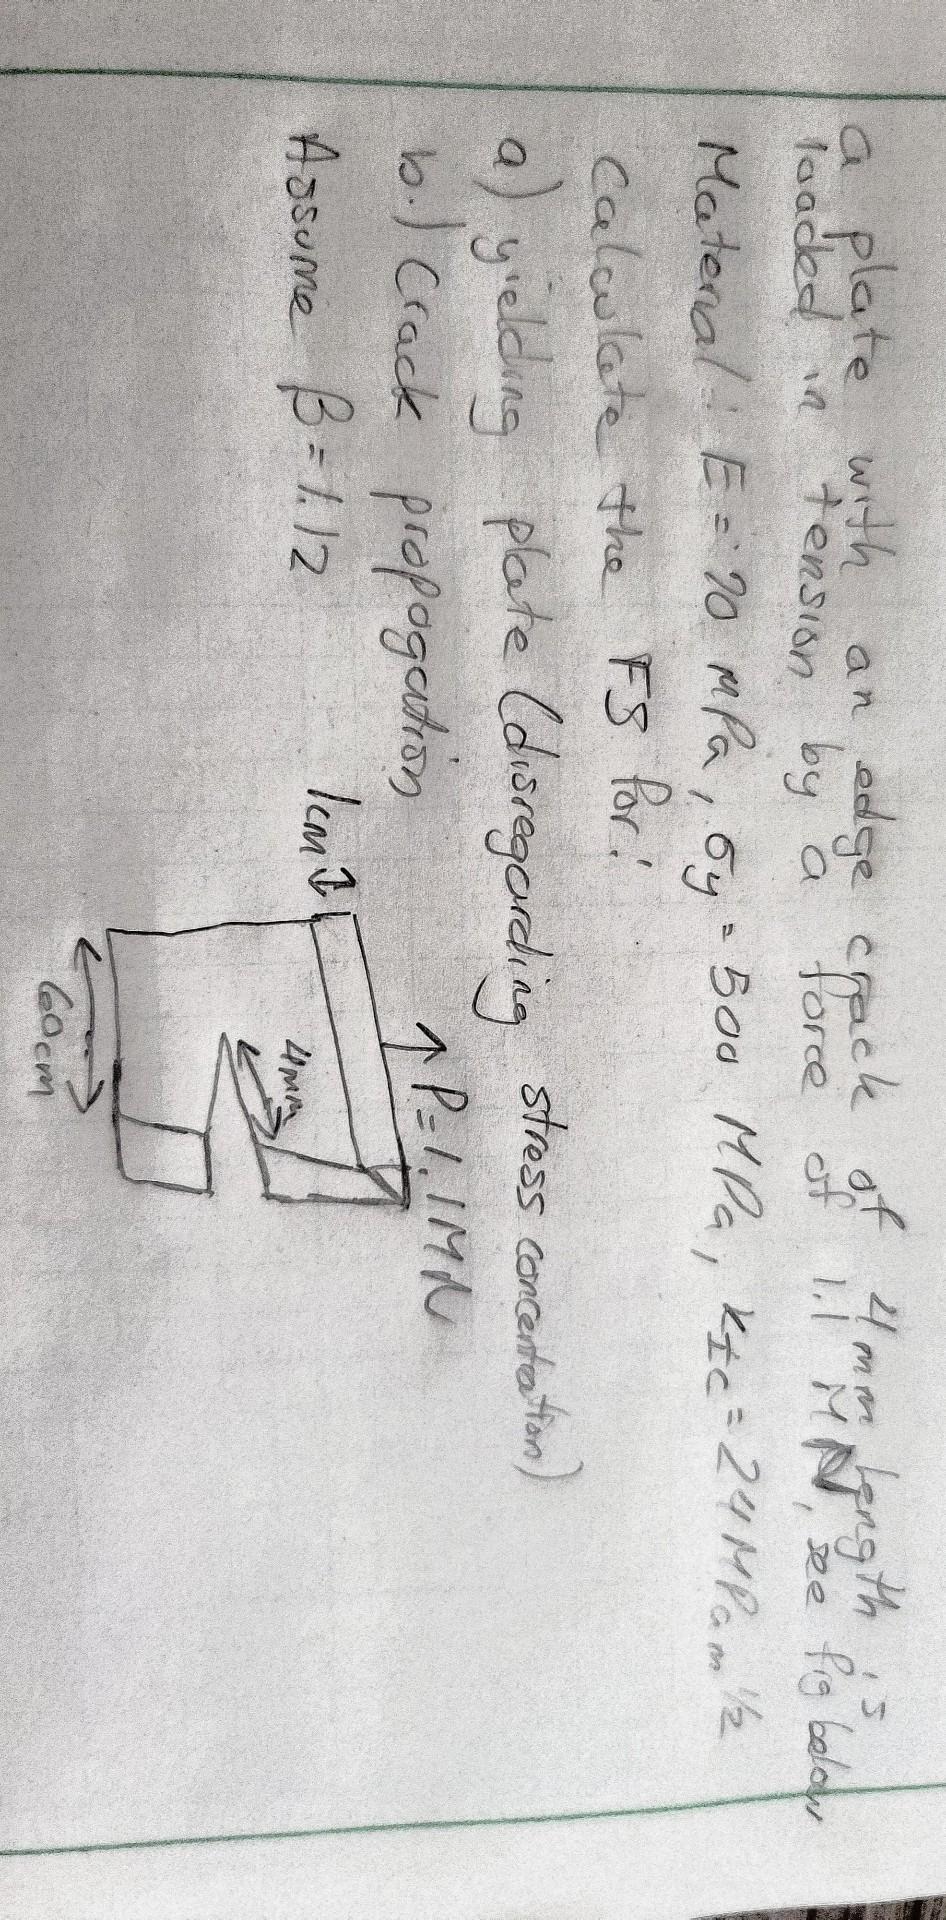 a plate with an edge crack of 4mm length is
loaded in tension by a force of 1.1 MN, see fig below
Material: E = 70 MPa, σy = 500 MPa, KIC = 24 MPa m^1/2
Calculate the FS for:
a) yielding plate (disregarding stress concentration)
b.) Crack propogation
Assume β = 1.12
P = 1.1MN
1cm
4mm
60cm